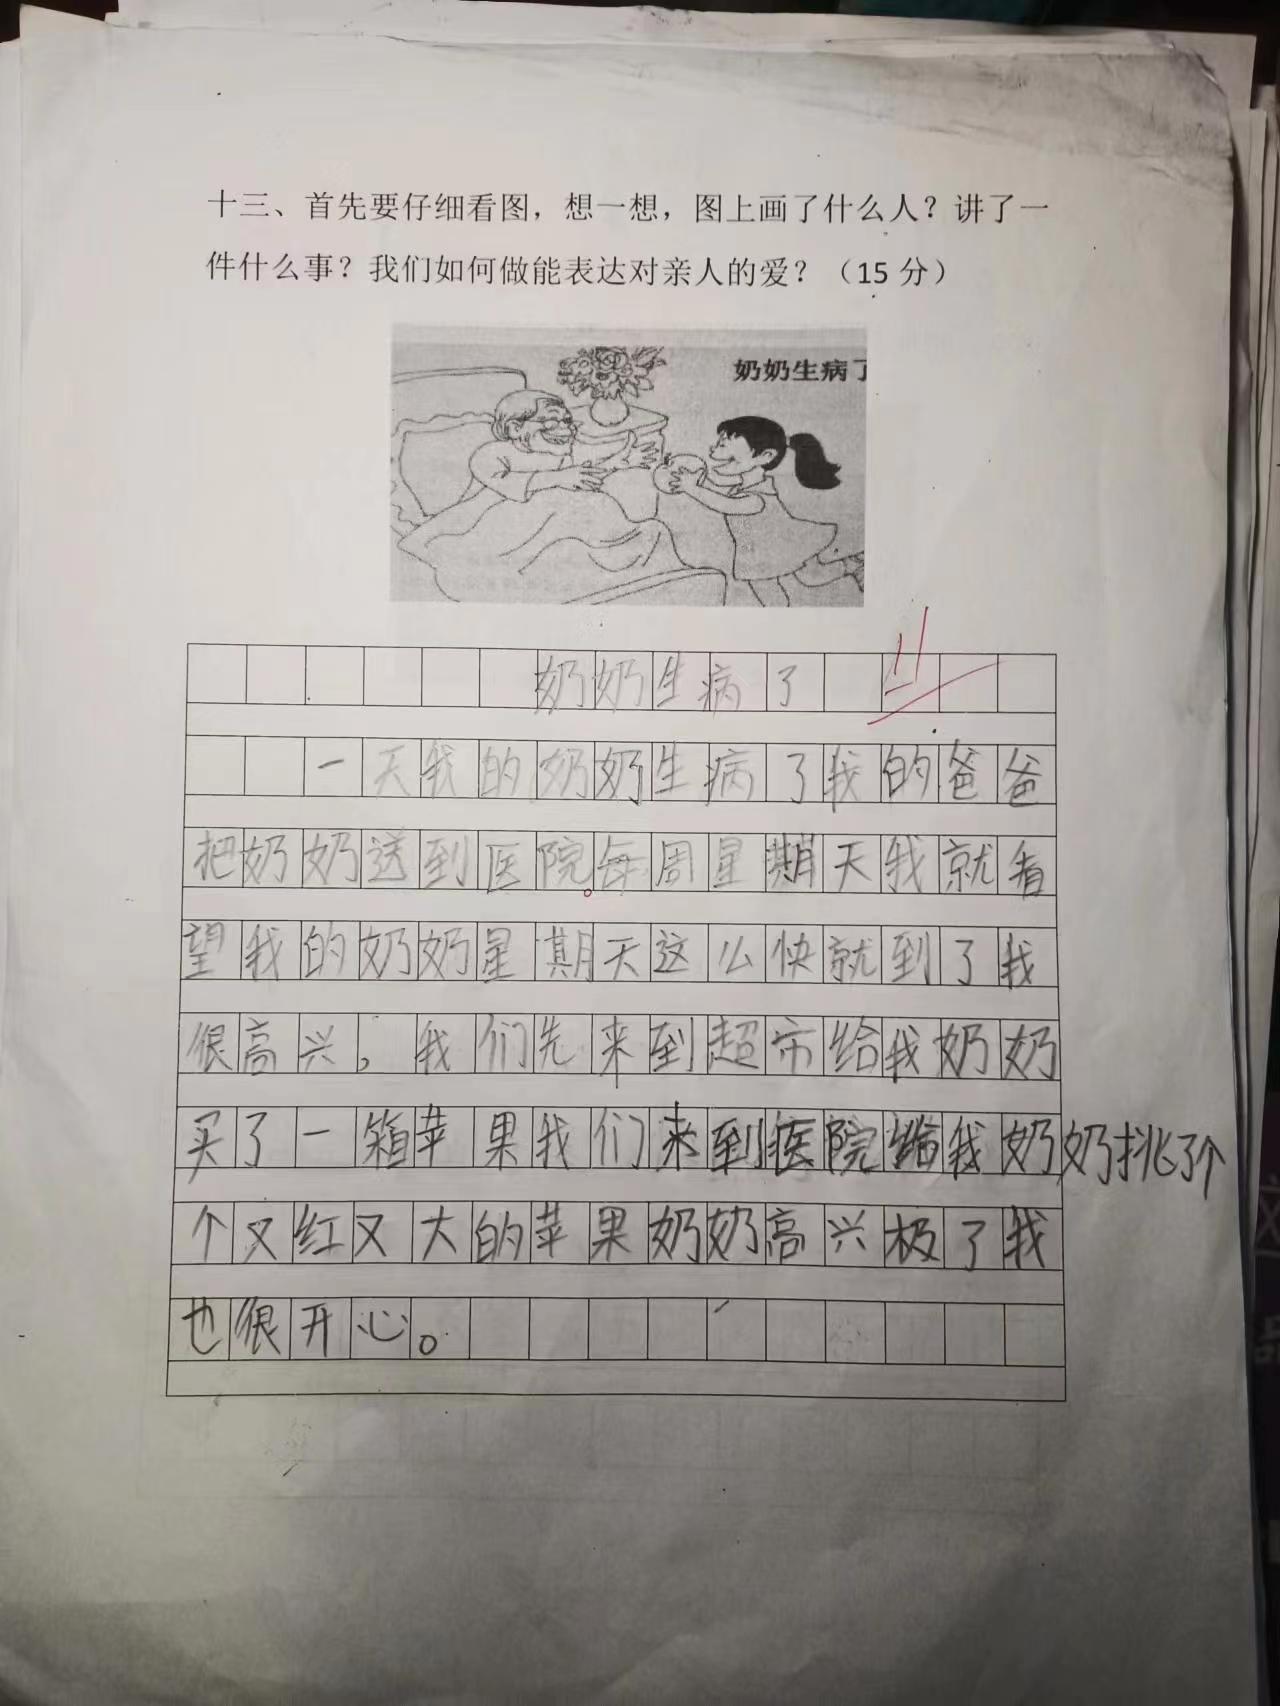 十三、首先要仔细看图，想一想，图上画了什么人？讲了一
件什么事？我们如何做能表达对亲人的爱？（15 分）
奶奶生病了
11
奶奶生病了
一天我的奶奶生病了我的爸爸
把奶奶送到医院。每周星期天我就看
望我的奶奶星期天这么快就到了我
很高兴，我们先来到超市给我奶奶
买了一箱苹果我们来到医院给我奶奶挑了个
个又红又大的苹果奶奶高兴极了我
也很开心。